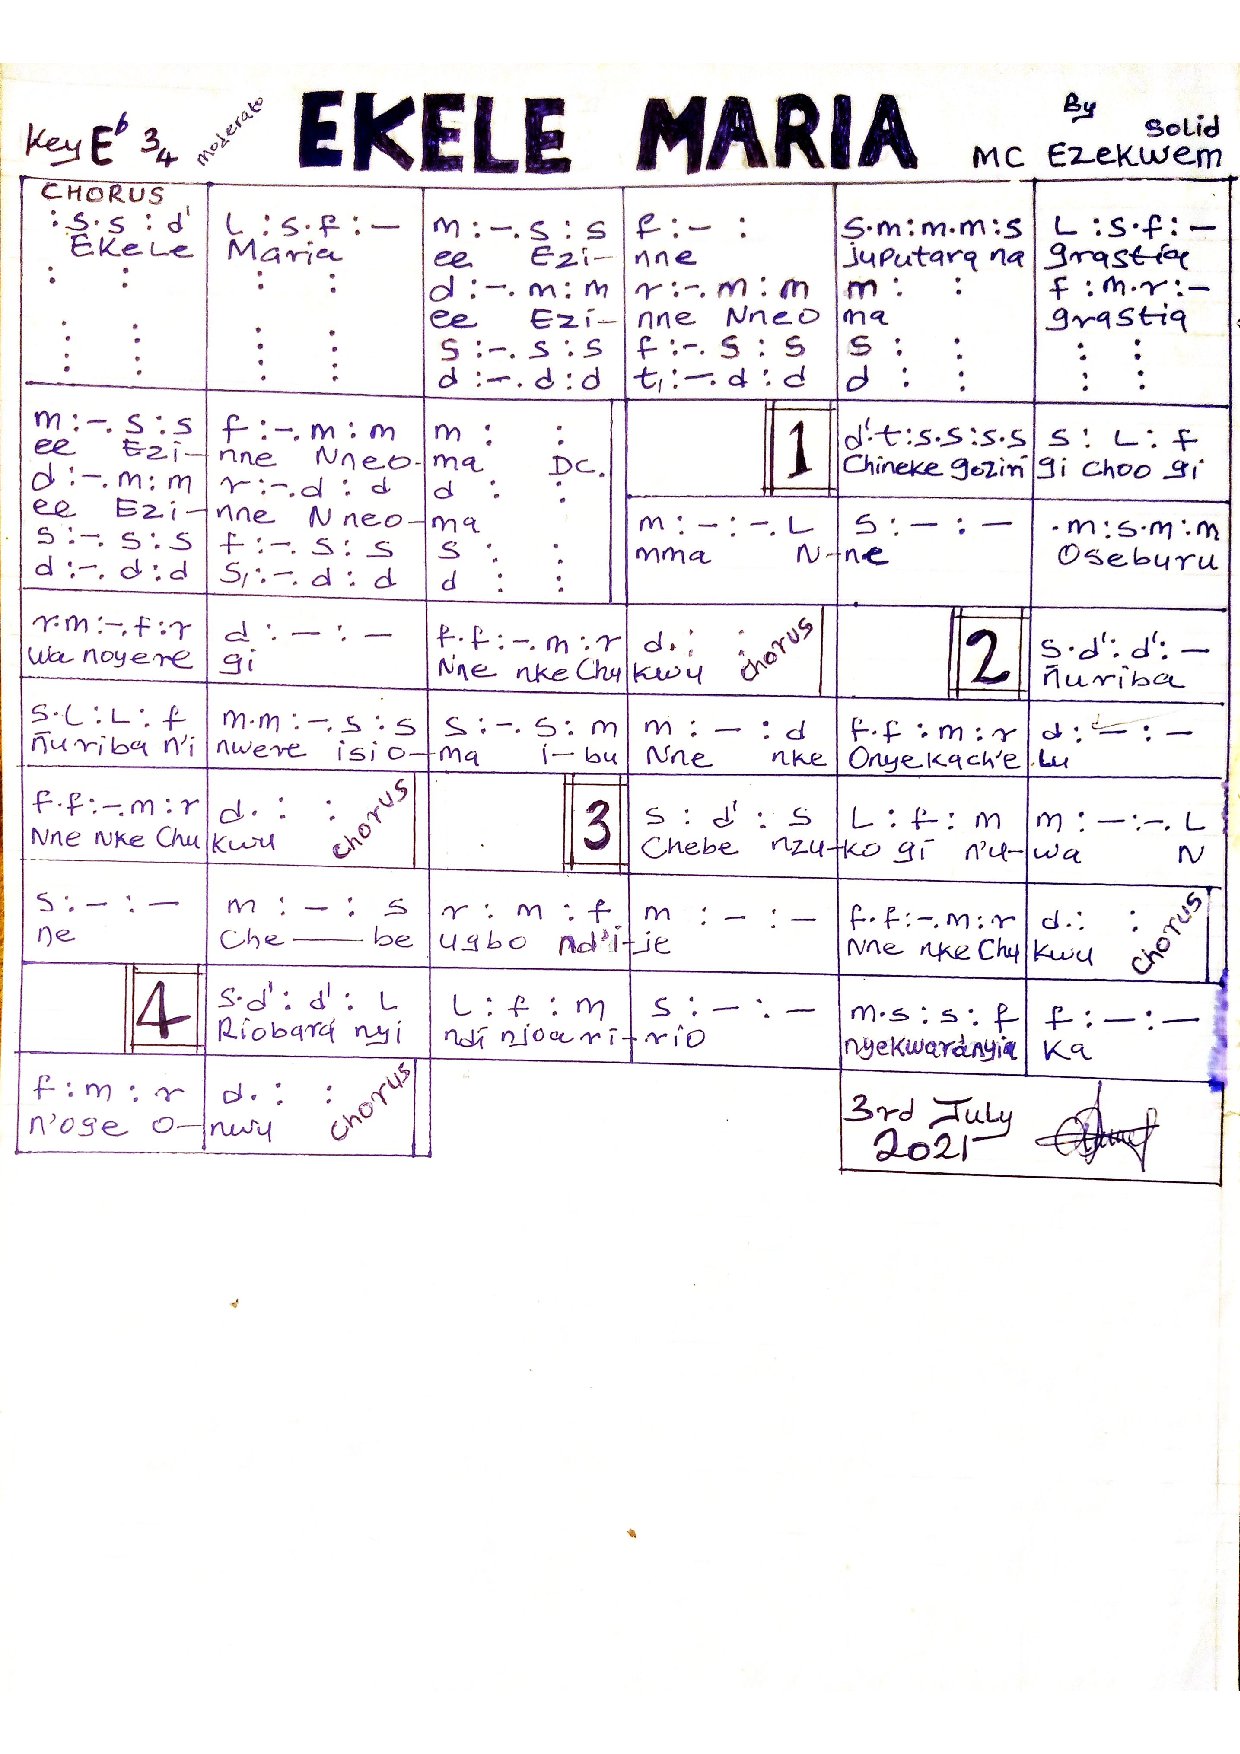 Key E♭ 3/4 moderato EKELE MARIA By Solid MC Ezekwem
CHORUS
:s.s:d' | L:s.f:— | m:—.s:s | f:—: | s.m:m.m:s | L:s.f:—
Ekele | Maria | ee Ezi- | nne | juputara na | grastia
: : | : : | d:—.m:m | r:—.m:m | m: : | f:m.r:—
ee Ezi- | nne Nneo | ma | grastia
: : | : : | s:—.s:s | f:—.s:s | s: : | : :
: : | : : | d:—.d:d | t,:—.d:d | d: : | : :
m:—.s:s | f:—.m:m | m: : | 1 | d'.t:s.s:s.s | s:L:f
ee Ezi- | nne Nneo- | ma DC. | Chineke goziri | gi choo gi
d:—.m:m | r:—.d:d | d: :
ee Ezi- | nne Nneo- | ma
s:—.s:s | f:—.s:s | s: : | m:—:—.L | s:—:— | .m:s.m:m
d:—.d:d | s,:—.d:d | d: : | mma N- | ne | Oseburu
r.m:—.f:r | d:—:— | f.f:—.m:r | d.: : chorus | 2 | s.d':d':—
wa noyere | gi | Nne nke Chu | kwu | ñuriba
s.L:L:f | m.m:—.s:s | s:—.s:m | m:—:d | f.f:m:r | d:—:—
ñuriba n'i | nwere isio- | ma i-bu | Nne nke | Onyekach'e | Lu
f.f:—.m:r | d.: : chorus | 3 | s:d':s | L:f:m | m:—:—.L
Nne nke Chu | kwu | Chebe nzu- | ko gi n'u- | wa N
s:—:— | m:—:s | r:m:f | m:—:— | f.f:—.m:r | d.: : chorus
ne | Che——be | ugbo nd'i- | je | Nne nke Chu | kwu
4 | s.d':d':L | L:f:m | s:—:— | m.s:s:f | f:—:—
Riobara nyi | ndi njoa ri- | rio | nyekwaranyia | ka
f:m:r | d.: : chorus
n'oge o- | nwu
3rd July
2021